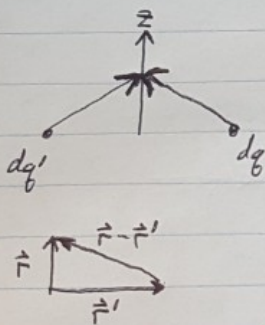 z
dq'
dq
r⃗ - r⃗'
r⃗
r⃗'